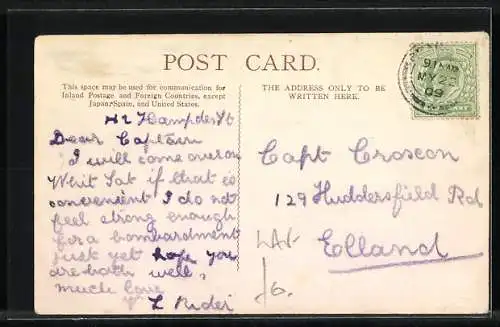 POST CARD.
This space may be used for communication for
Inland Postage and Foreign Countries, except
Japan, Spain, and United States.
THE ADDRESS ONLY TO BE
WRITTEN HERE.
42 Hampden St
Dear Captain
I will come over on
Whit Sat if that is
convenient I do not
feel strong enough
for a bombardment
just yet hope you
are both well,
much love
L Rider
Capt Croscon
129 Huddersfield Rd
Elland
MY 25
09